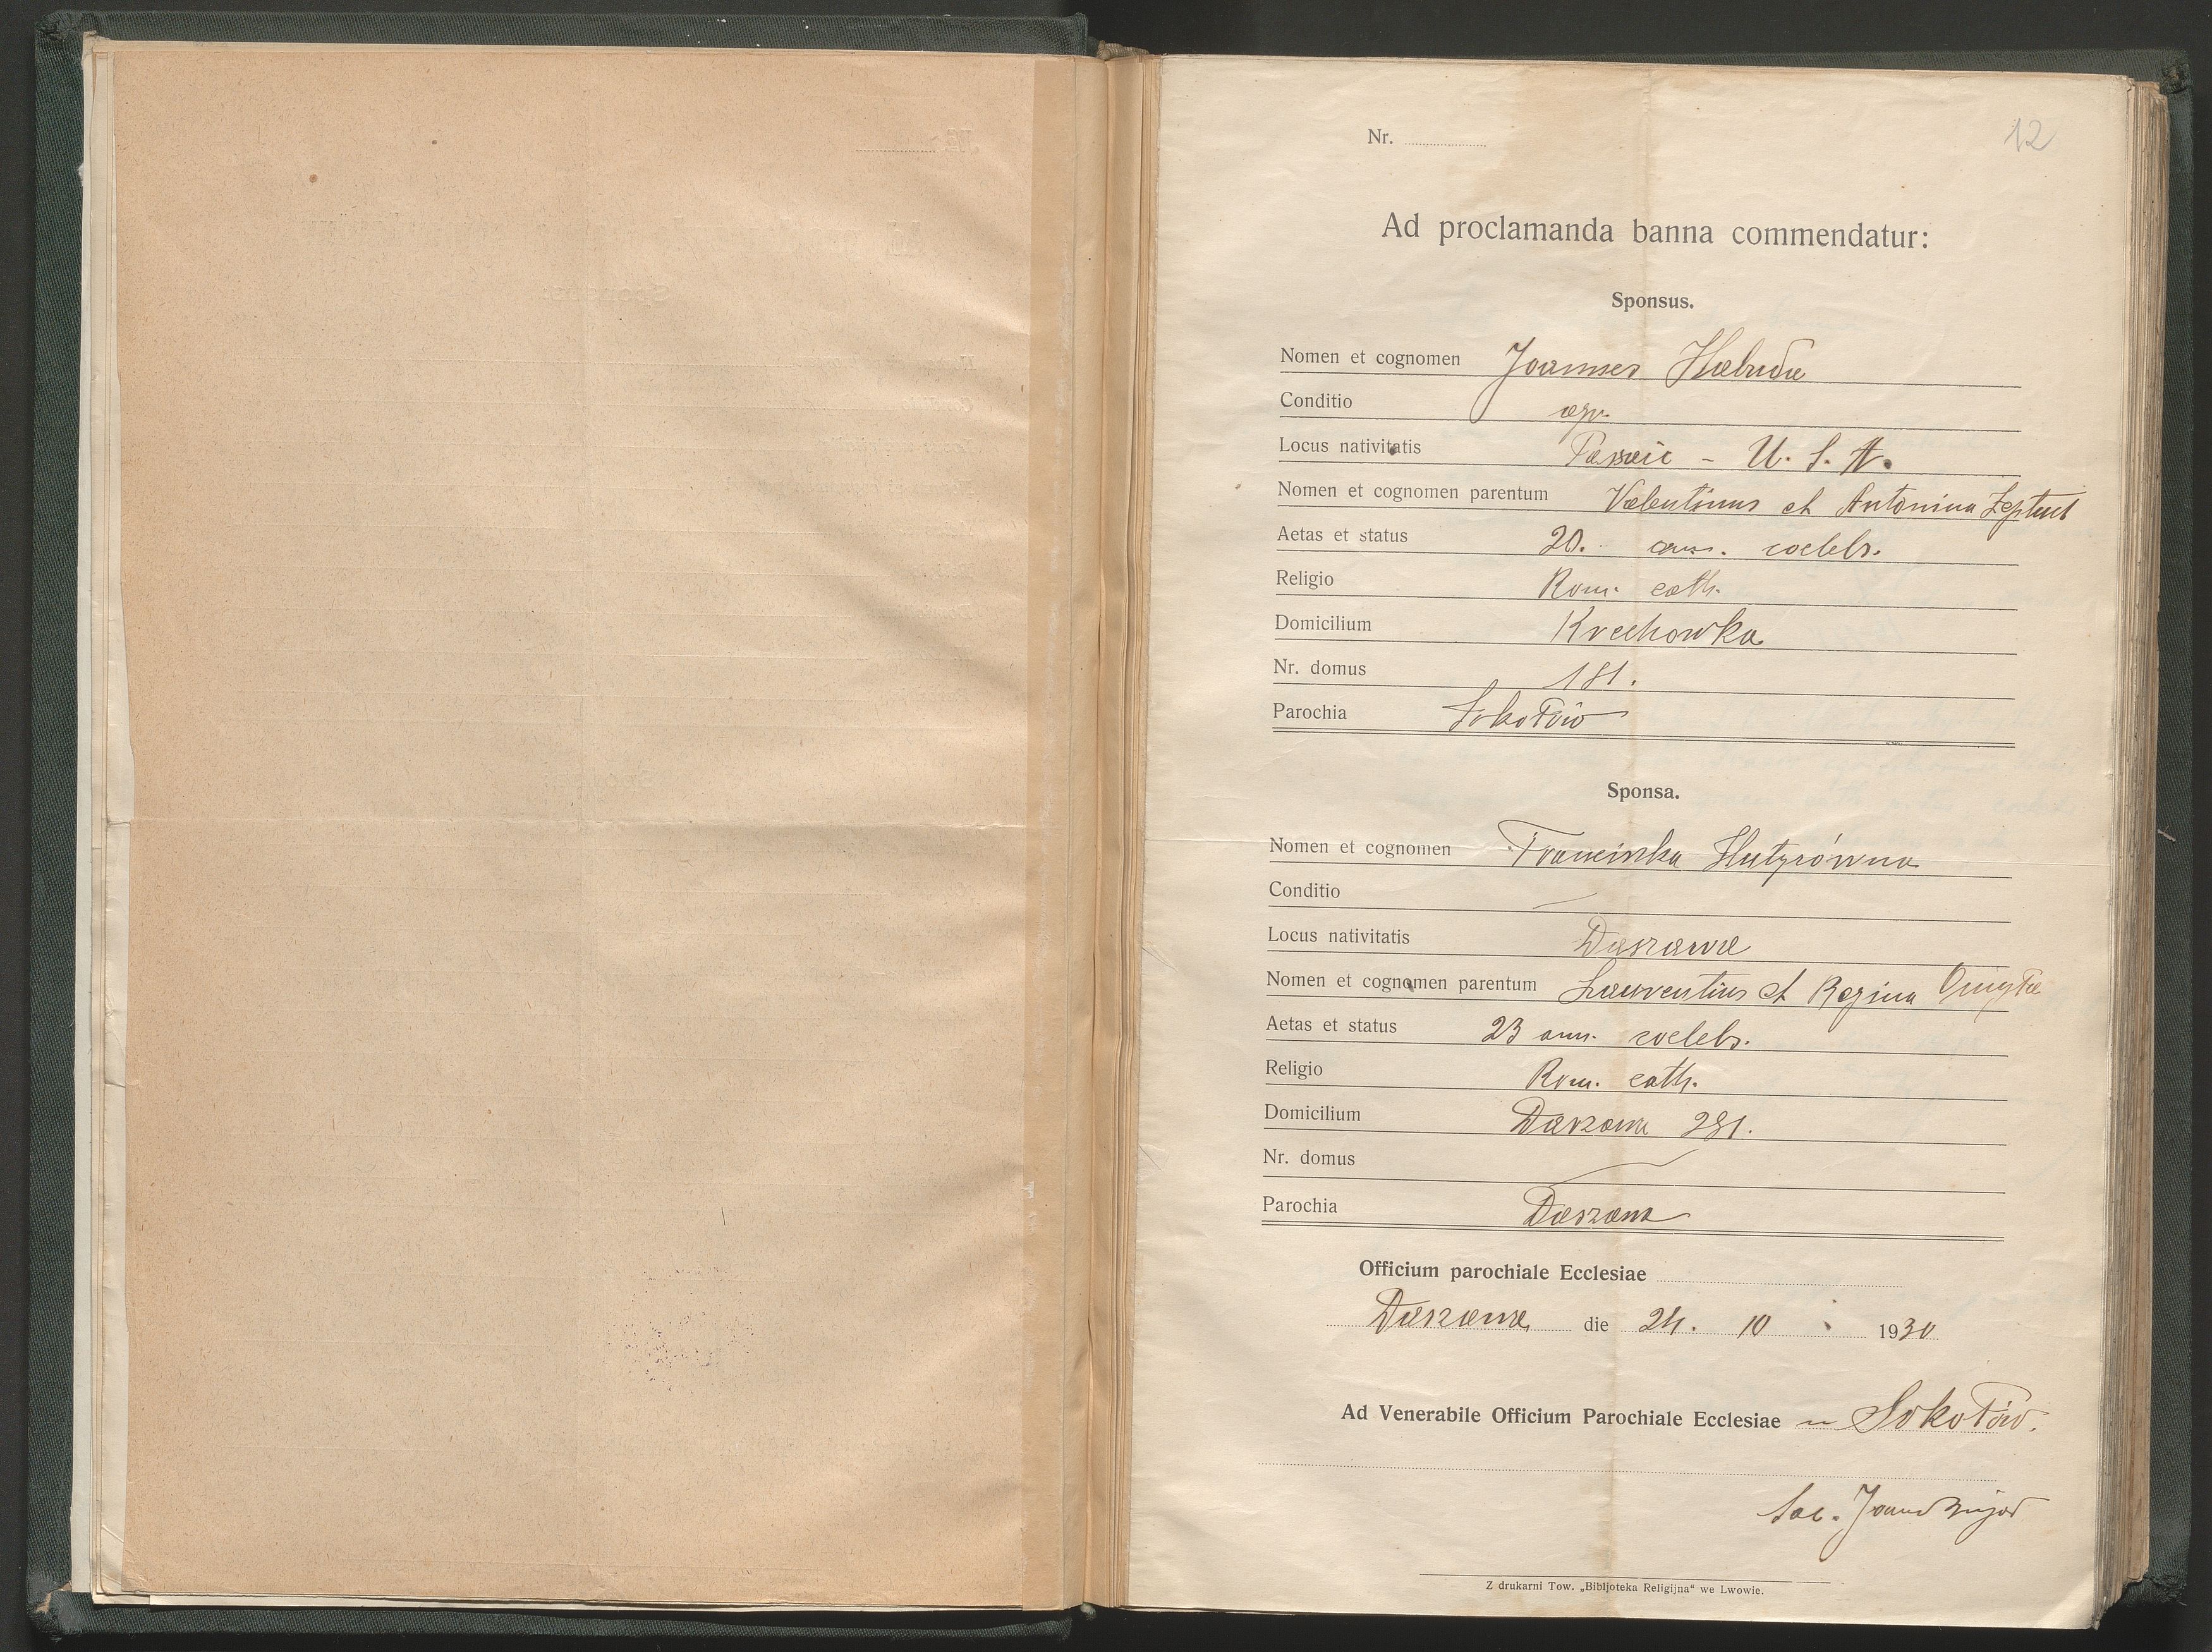 12
Nr.
Ad proclamanda banna commendatur:
Sponsus.
Nomen et cognomen Joannes Hałuda
Conditio agr.
Locus nativitatis Passaic - U. S. A.
Nomen et cognomen parentum Valentinus et Antonina
Aetas et status 20. ann. coelebs.
Religio Rom. cath.
Domicilium Krechowka
Nr. domus 181.
Parochia Sokołów
Sponsa.
Nomen et cognomen Franciska Hutyrówna
Conditio
Locus nativitatis Daszawa
Nomen et cognomen parentum Laurentius et Regina
Aetas et status 23 ann. coelebs.
Religio Rom. cath.
Domicilium Daszawa 281.
Nr. domus
Parochia Daszawa
Officium parochiale Ecclesiae
Daszawa die 24. 10 1930
Ad Venerabile Officium Parochiale Ecclesiae in Sokołów.
Sac. Joannes
Z drukarni Tow. „Bibljoteka Religijna“ we Lwowie.